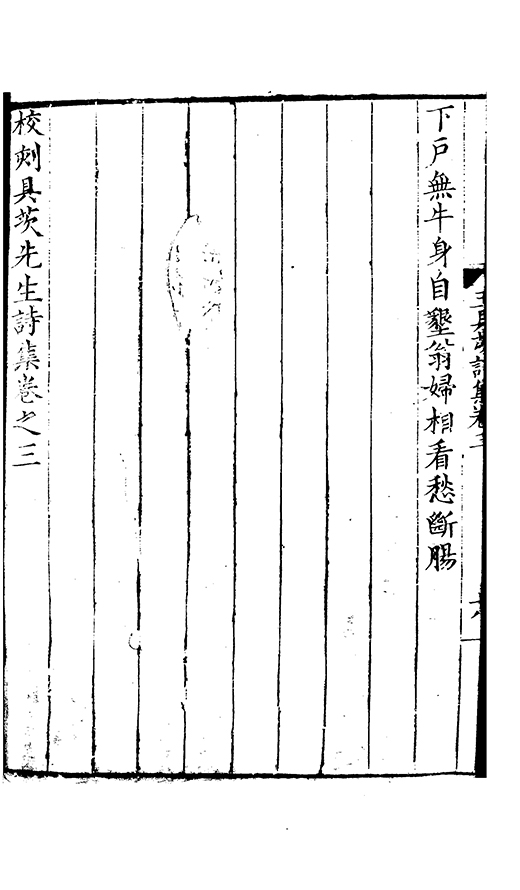 下戶無牛身自墾翁婦相看愁斷腸
校刻具茨先生詩集卷之三